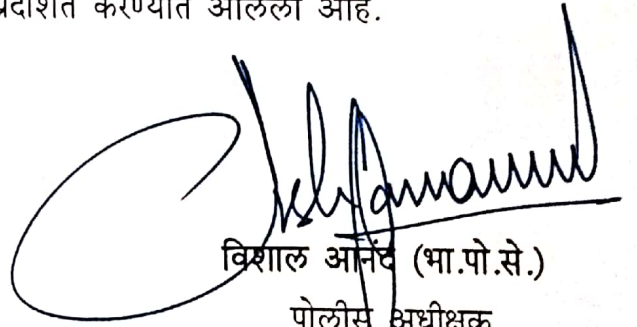 प्रदर्शित करण्यात आलेला आहे.
विशाल आनंद (भा.पो.से.)
पोलीस अधीक्षक